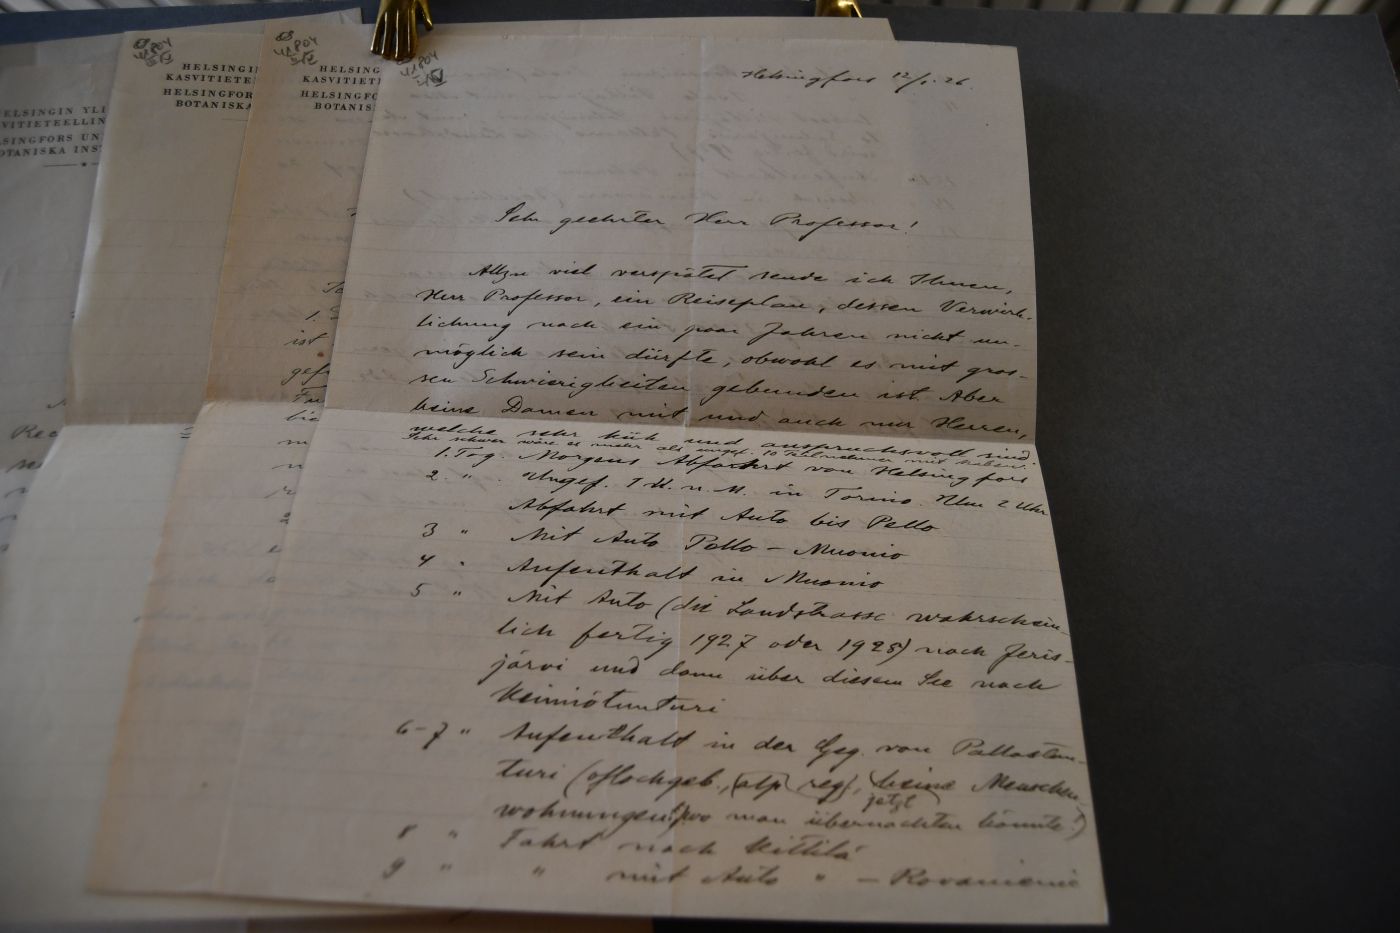 HELSINGIN YLI
VITIETEELLIN
LSINGFORS UN
OTANISKA INST
HELSINGI
KASVITIETE
HELSINGFOR
BOTANISKA
HELSING
KASVITIE
HELSINGFO
BOTANISK
Helsingfors 12/1. 26.
Sehr geehrter Herr Professor!
Allzu viel verspätet sende ich Ihnen,
Herr Professor, ein Reiseplan, dessen Verwirk-
lichung nach ein paar Jahren nicht un-
möglich sein dürfte, obwohl es mit gros-
sen Schwierigkeiten gebunden ist. Aber
keine Damen mit und auch nur Herren,
welche sehr küh und anspruchsvoll sind.
Sehr schwer wäre es mehr als ungef. 10 Teilnehmer mit haben.
1. Tag. Morgens Abfahrt von Helsingfors
2. " . Ungef. 1 U. n. M. in Tornio. Um 2 Uhr
Abfahrt mit Auto bis Pello
3 " Mit Auto Pello – Muonio
4 " Aufenthalt in Muonio
5 " Mit Auto (die Landstrasse wahrschein-
lich fertig 1927 oder 1928) nach Jeris-
järvi und dann über diesem See nach
Keimiötunturi
6-7 " Aufenthalt in der Geg. von Pallastun-
turi (Hochgeb., (alp reg), (keine Menschen-
jetzt
wohnungen!) wo man übernachten könnte!)
8 " Fahrt nach Kittilä
9 " " mit Auto " – Rovaniemi